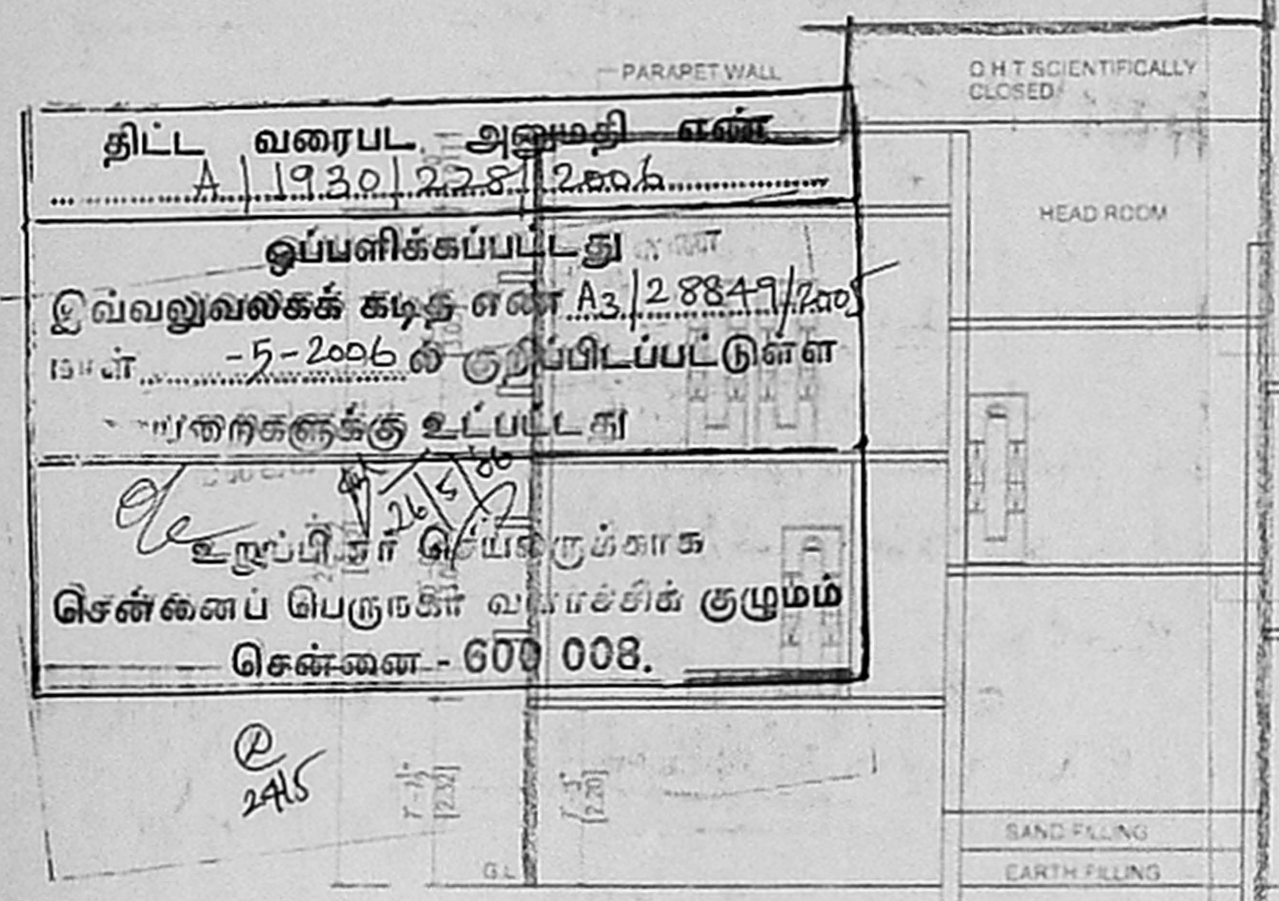 PARAPET WALL
O H T SCIENTIFICALLY
CLOSED
திட்ட வரைபட அனுமதி எண்
A/1930/228/2006
HEAD ROOM
ஒப்பளிக்கப்பட்டது
இவ்வலுவலகக் கடித எண் A3/28849/2005
நாள் -5-2006 ல் குறிப்பிடப்பட்டுள்ள
உட்பட்டது
26/5/06
உறுப்பினர் செயலருக்காக
சென்னைப் பெருநகர் வளர்ச்சிக் குழுமம்
சென்னை - 600 008.
24/5
7'-7½"
[2.32]
[2.20]
SAND FILLING
G.L
EARTH FILLING